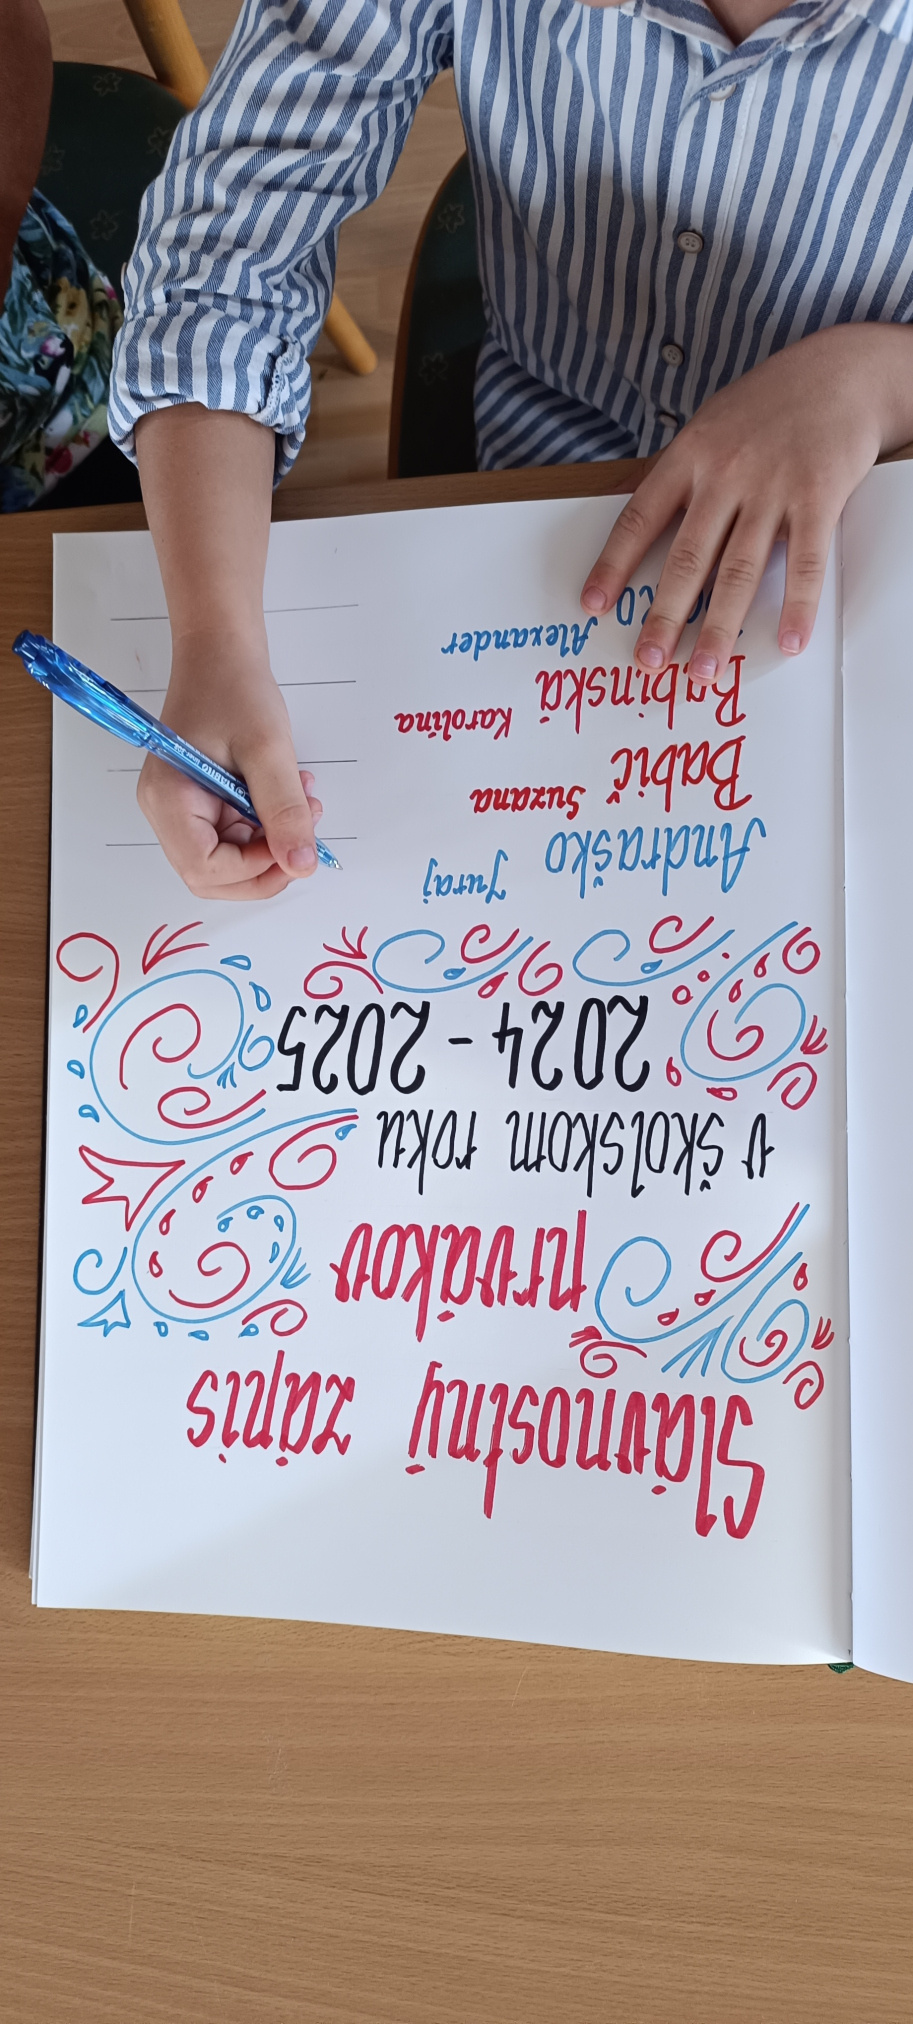 Slávnostný zápis
prvákov
v školskom roku
2024 - 2025
Andraško Juraj
Babič Suzana
Babinská Karolína
Alexander
STABILO liner 308